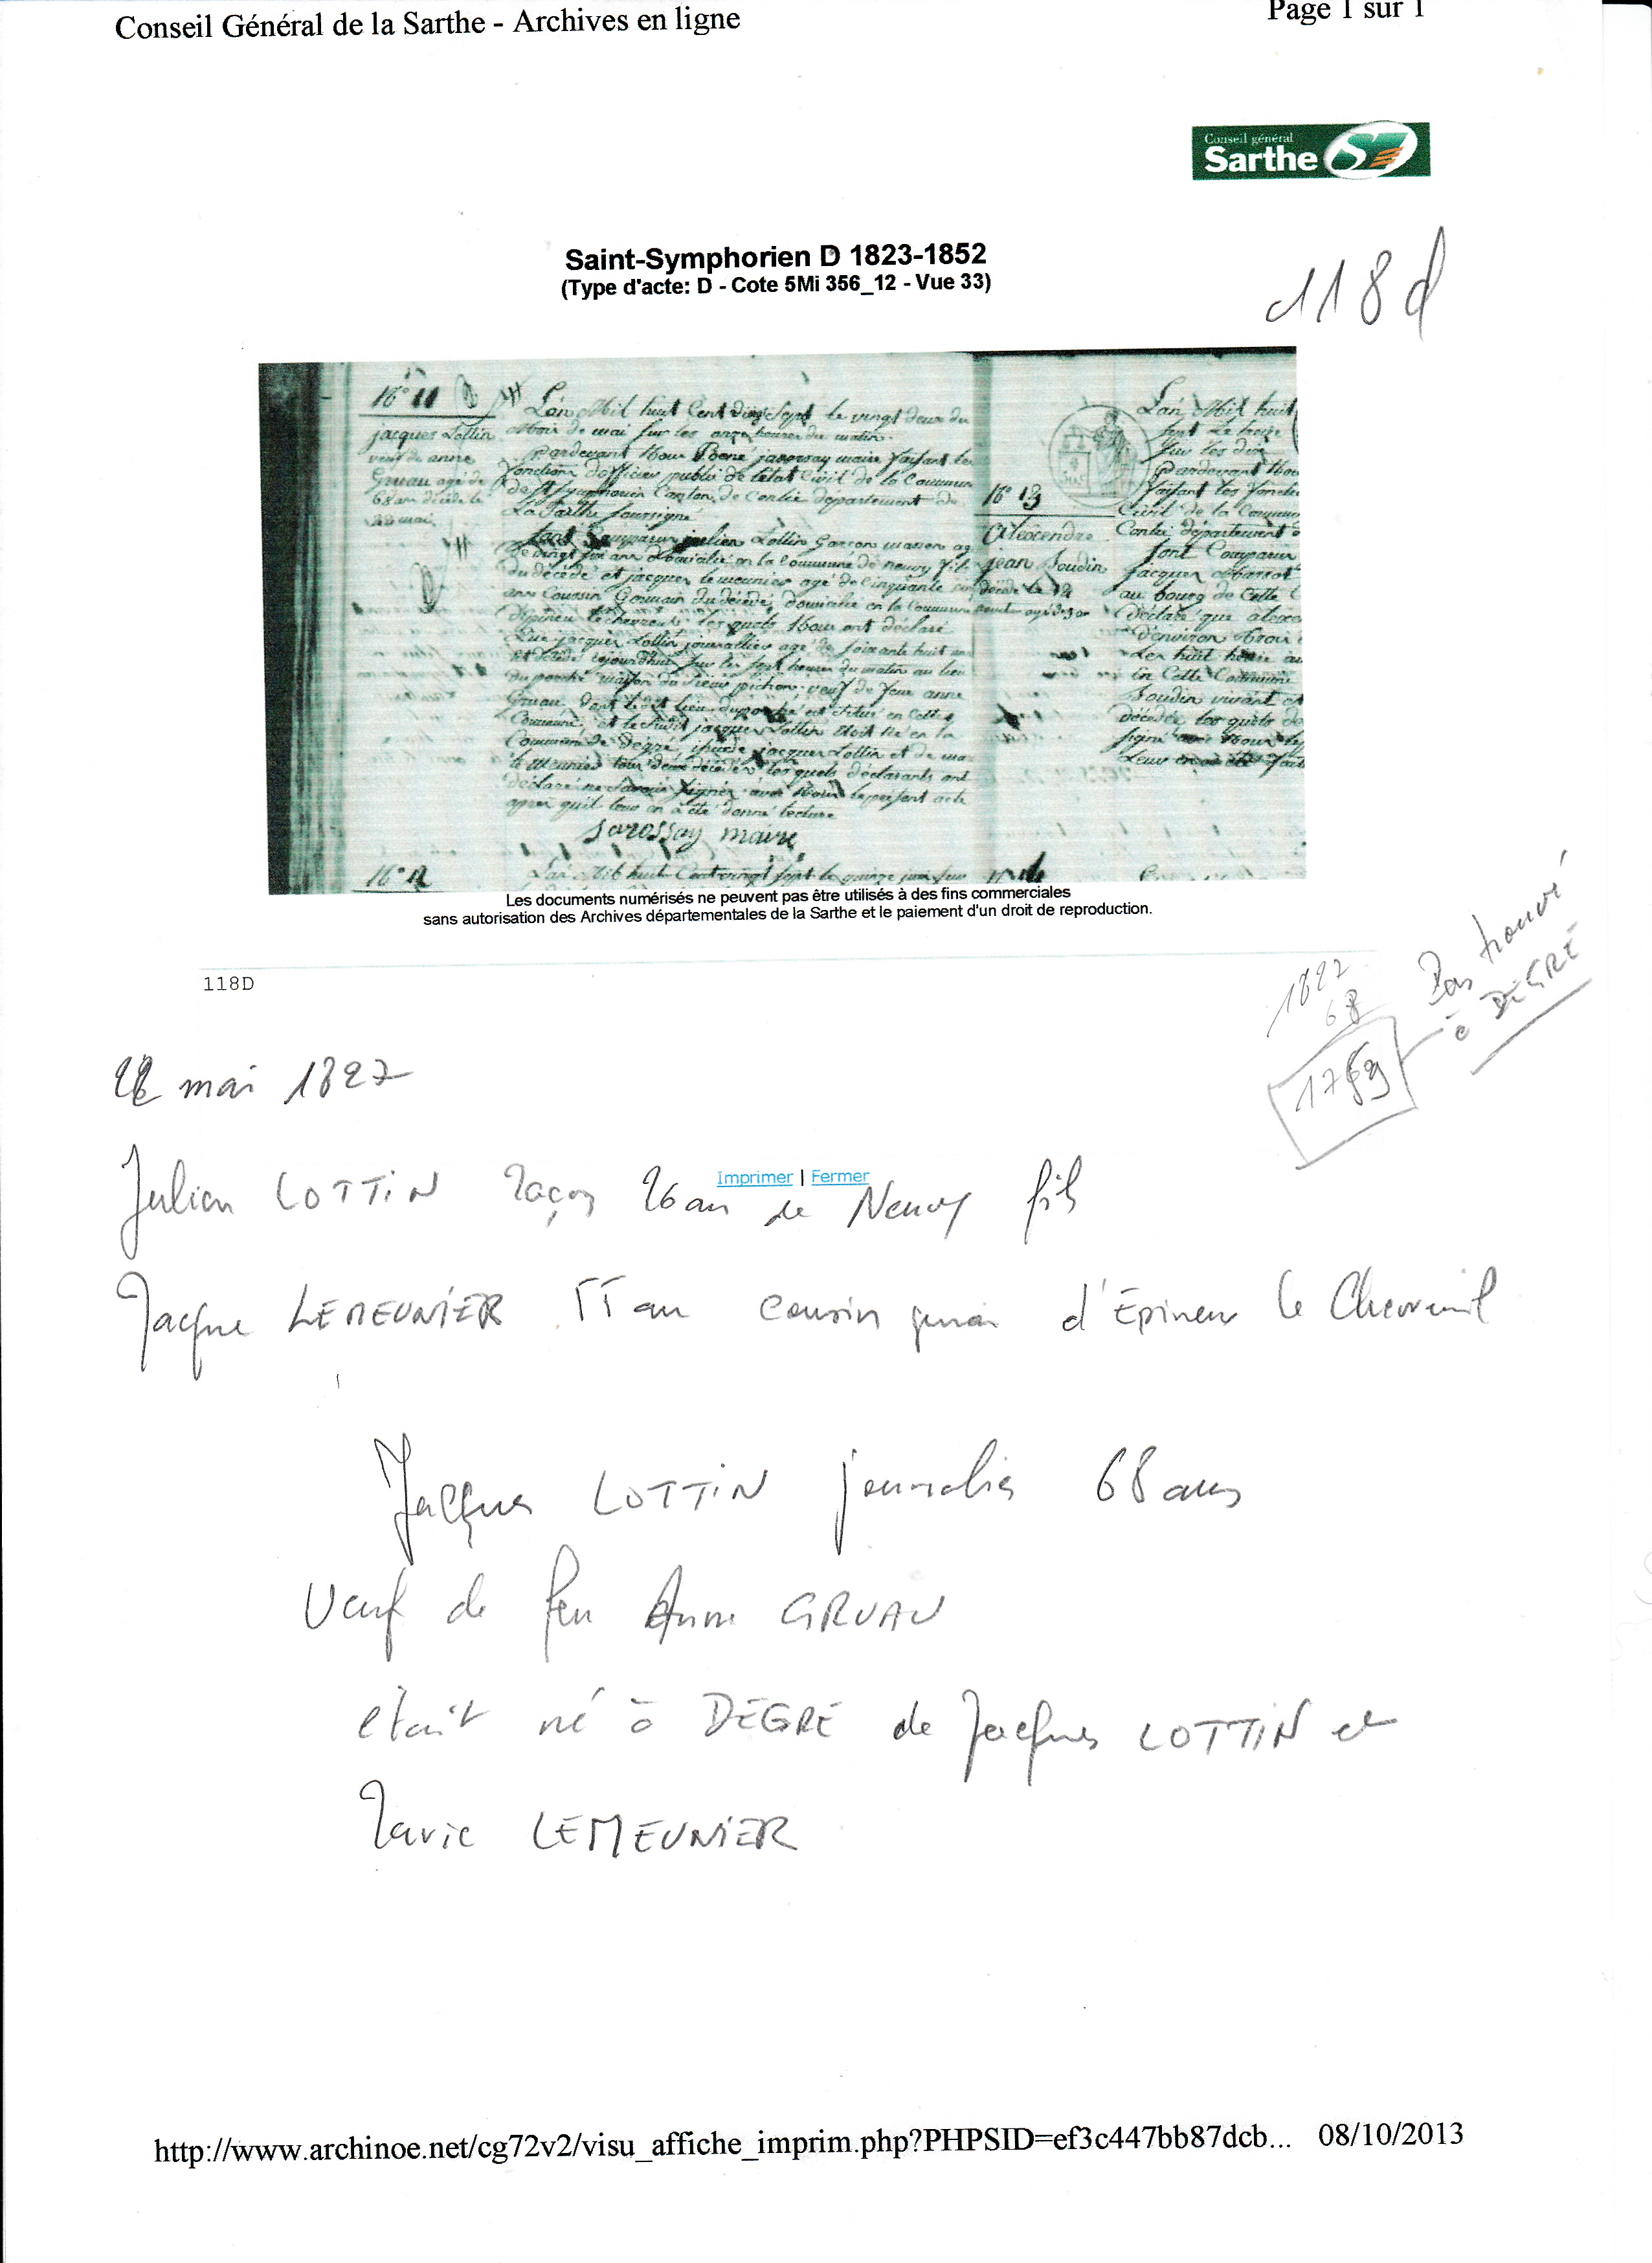 Conseil Général de la Sarthe - Archives en ligne
Page 1 sur 1
Conseil général
Sarthe
Saint-Symphorien D 1823-1852
(Type d'acte: D - Cote 5Mi 356_12 - Vue 33)
118d
N° 11
jacques Lottin
veuf de anne
Gruau agé de
68 ans décédé le
22 mai
L'an Mil huit Cent vingt Sept le vingt deux du
Mois de mai sur les onze heures du matin
pardevant Nous René jarossay maire faisant les
fonctions d'officier public de l'état Civil de la Commune
de St Symphorien Canton de Conlie département de
La Sarthe soussigné
Sont Comparus julien Lottin Garçon masson agé
de vingt six ans domicilié en la Commune de neuvy fils
du décédé et jacques lemeunier agé de cinquante
ans Coussin Germain du décédé, domicilié en la Commune
d'épineu lechevreuil les quels Nous ont déclaré
Que jacques Lottin journallier agé de soixante huit ans
est décédé cejourd'hui sur les sept heures du matin au lieu
du porché maison du sieur pichon, veuf de feue anne
Gruau, dont ledit lieu duporché est situé en Cette
Commune, et le susdit jacques Lottin étoit né en la
Commune de Dégré, issu de jacques Lottin et de
le Meunier tous deux décédés les quels déclarants ont
déclaré ne Savoir Signer avec Nous le présent acte
apres qu'il leur en a été donné lecture
Jarossay maire
N° 12
L'an Mil huit Cent vingt sept le quinze juin sur
N° 13
Alexendre
jean Soudin
décédé le 12
L'an Mil huit
Sept Le treize
Sur les dix
Pardevant Nous
faisant les fonctions
Civil de la Commune
Conlie département
Sont Comparus
jacques
au bourg de Cette
déclaré que
d'environ
Les huit heure
En Cette Commune
Soudin vivant
décédés les quels
signé Nous
Les documents numérisés ne peuvent pas être utilisés à des fins commerciales
sans autorisation des Archives départementales de la Sarthe et le paiement d'un droit de reproduction.
118D
1827
68
1759
Pas trouvé
à DEGRÉ
22 mai 1827
Imprimer | Fermer
Julien LOTTIN Maçon 26 ans de Neuvy fils
Jacques LEMEUNIER 55 ans cousin germain d'Epineu le Chevreuil
Jacques LOTTIN journalier 68 ans
Veuf de feu Anne GRUAU
était né à DEGRÉ de Jacques LOTTIN et
Marie LEMEUNIER
http://www.archinoe.net/cg72v2/visu_affiche_imprim.php?PHPSID=ef3c447bb87dcb... 08/10/2013